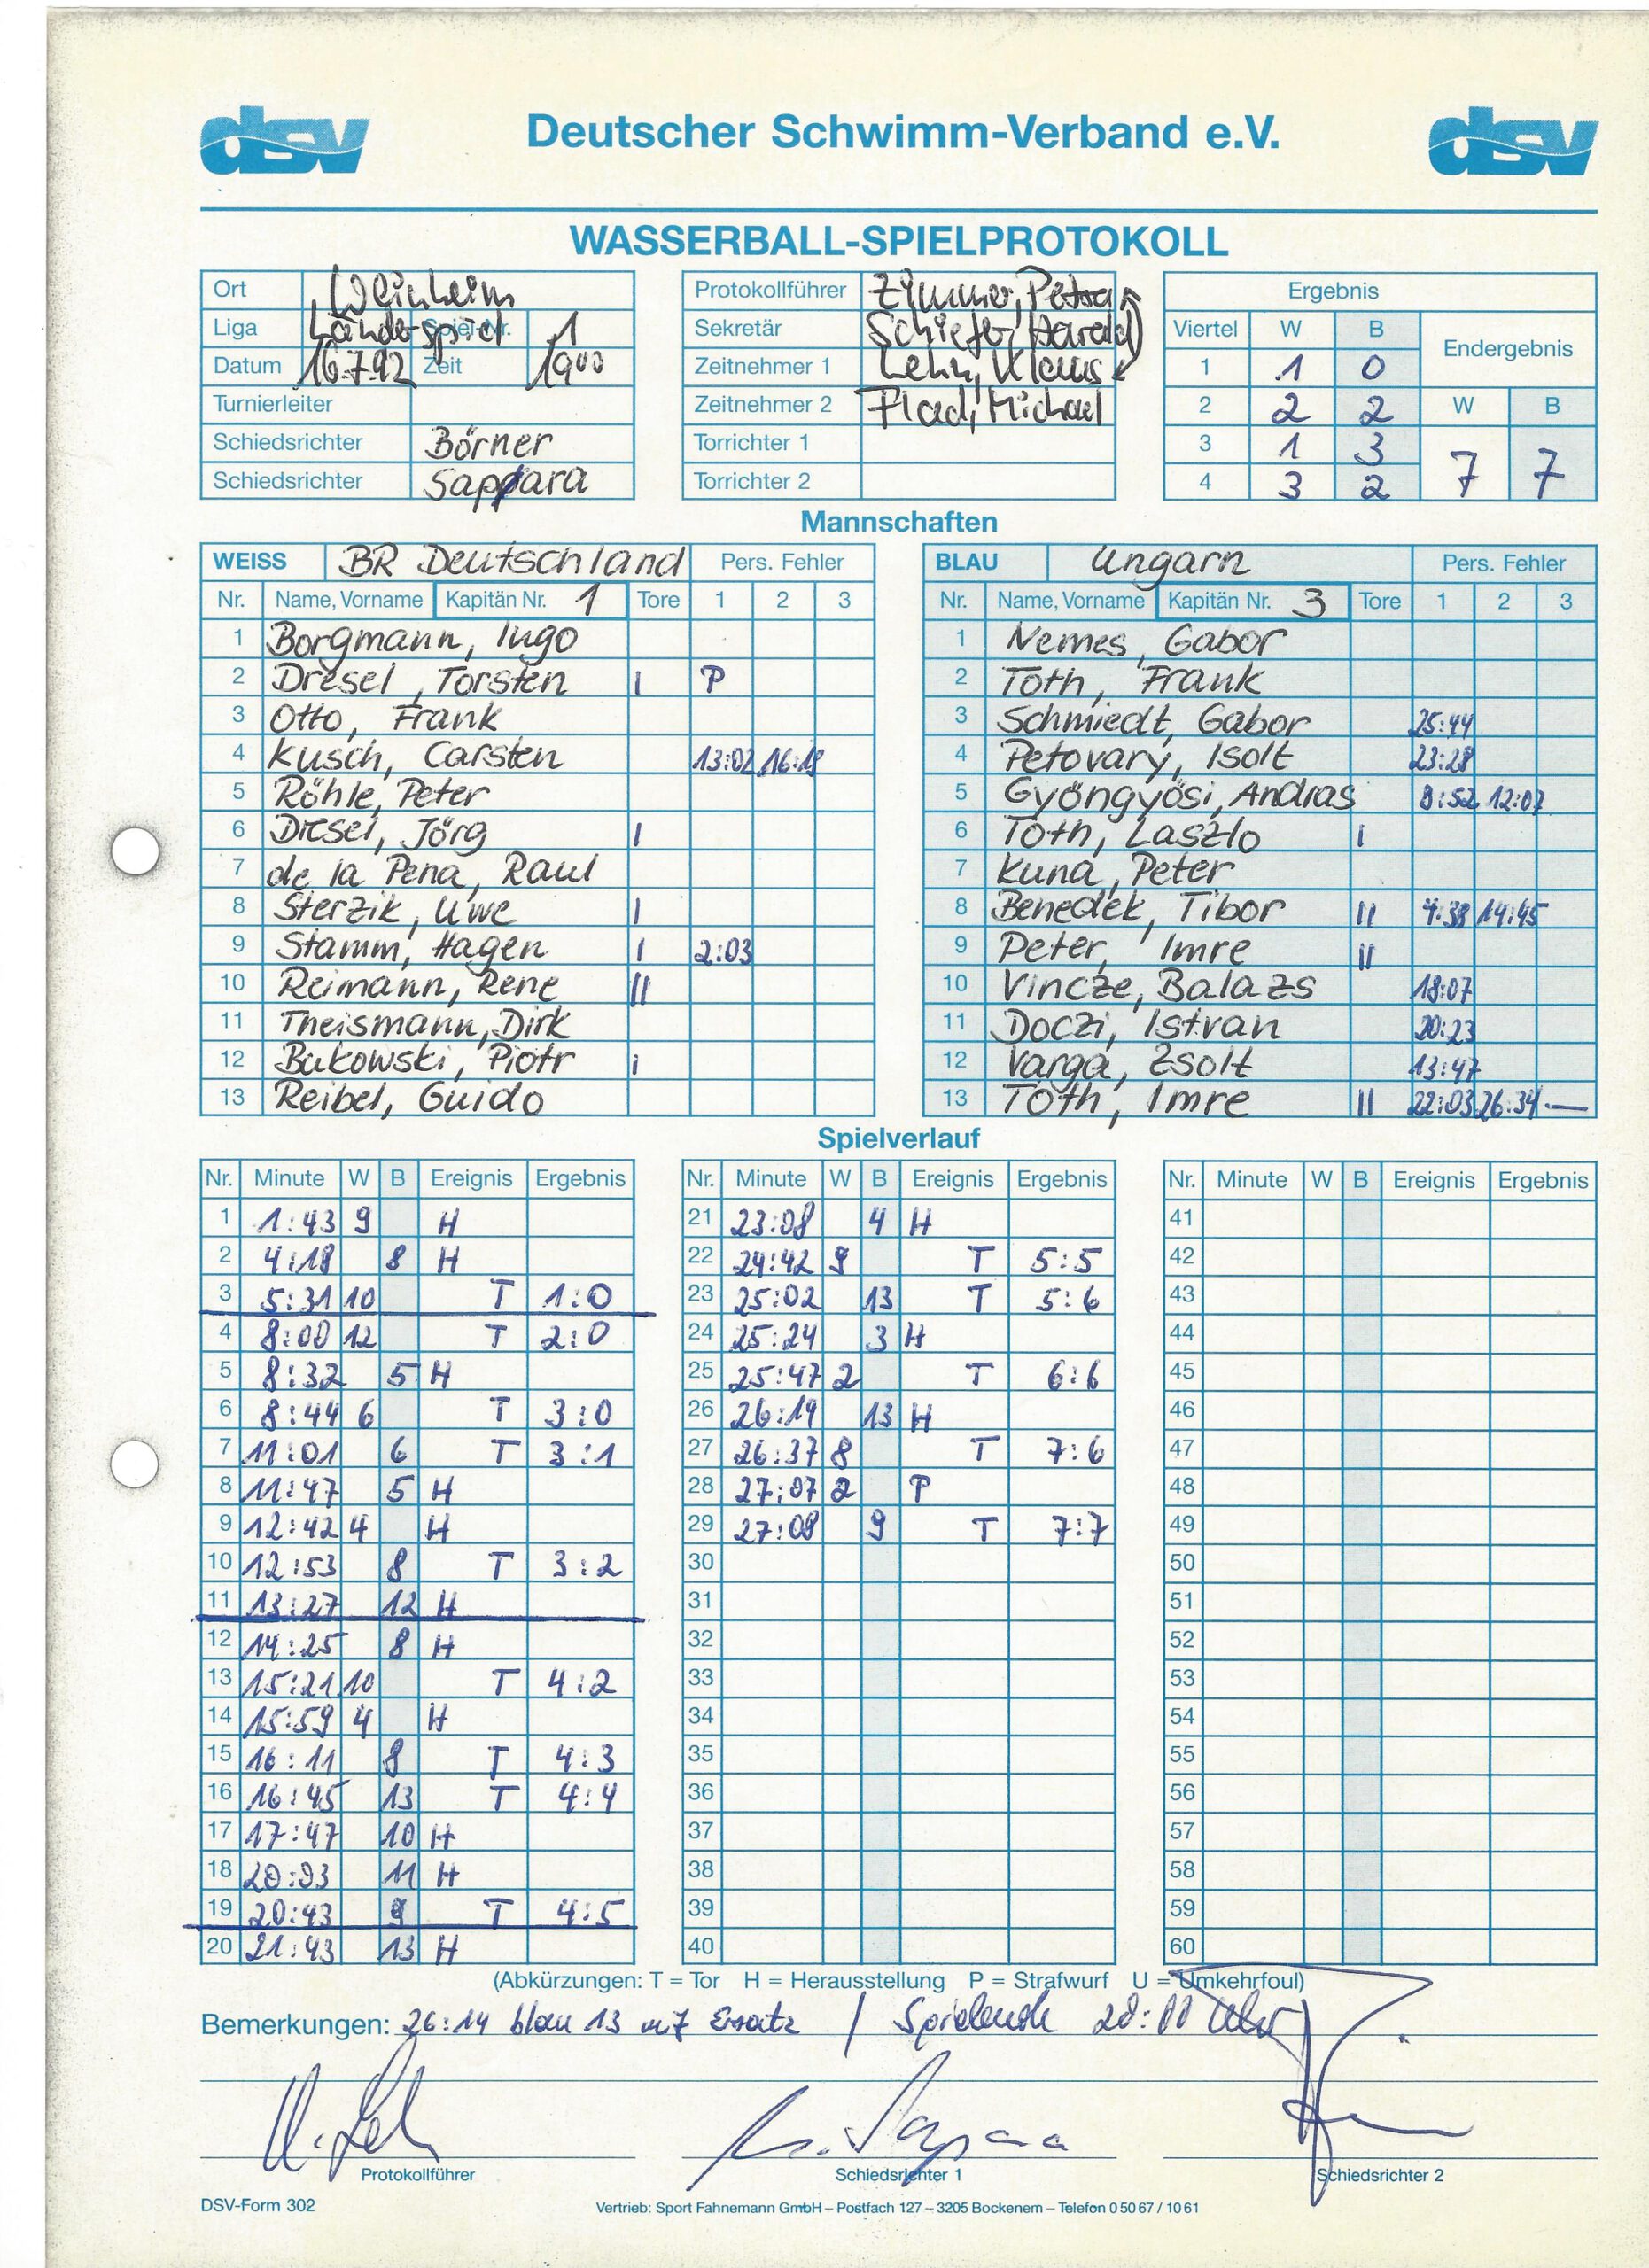 dsv Deutscher Schwimm-Verband e.V. dsv
WASSERBALL-SPIELPROTOKOLL
Ort Weinheim
Liga Länderspiel Spiel-Nr. 1
Datum 16.7.92 Zeit 1900
Turnierleiter
Schiedsrichter Börner
Schiedsrichter Sappara
Protokollführer Zimmer, Petra
Sekretär Schiefer, Harald
Zeitnehmer 1 Lehn, Klaus
Zeitnehmer 2 Flad, Michael
Torrichter 1
Torrichter 2
Ergebnis
Viertel W B Endergebnis
1 1 0
2 2 2 W B
3 1 3 7 7
4 3 2
Mannschaften
WEISS BR Deutschland Pers. Fehler
Nr. Name, Vorname Kapitän Nr. 1 Tore 1 2 3
1 Borgmann, Ingo
2 Dresel, Torsten I P
3 Otto, Frank
4 Kusch, Carsten 13:02 16:19
5 Röhle, Peter
6 Dresel, Jörg I
7 de la Pena, Raul
8 Sterzik, Uwe I
9 Stamm, Hagen I 2:03
10 Reimann, Rene II
11 Theismann, Dirk
12 Bukowski, Piotr i
13 Reibel, Guido
BLAU Ungarn Pers. Fehler
Nr. Name, Vorname Kapitän Nr. 3 Tore 1 2 3
1 Nemes, Gabor
2 Toth, Frank
3 Schmiedt, Gabor 25:44
4 Petovary, Isolt 23:28
5 Gyöngyösi, Andras 8:52 12:07
6 Toth, Laszlo I
7 Kuna, Peter
8 Benedek, Tibor II 4:38 14:45
9 Peter, Imre II
10 Vincze, Balazs 18:07
11 Doczi, Istvan 20:23
12 Varga, Zsolt 13:47
13 Toth, Imre II 22:03 26:34 —
Spielverlauf
Nr. Minute W B Ereignis Ergebnis
1 1:43 9 H
2 4:18 8 H
3 5:31 10 T 1:0
4 8:00 12 T 2:0
5 8:32 5 H
6 8:44 6 T 3:0
7 11:01 6 T 3:1
8 11:47 5 H
9 12:42 4 H
10 12:53 8 T 3:2
11 13:27 12 H
12 14:25 8 H
13 15:21 10 T 4:2
14 15:59 4 H
15 16:11 8 T 4:3
16 16:45 13 T 4:4
17 17:47 10 H
18 20:03 11 H
19 20:43 9 T 4:5
20 21:43 13 H
Nr. Minute W B Ereignis Ergebnis
21 23:08 4 H
22 24:42 9 T 5:5
23 25:02 13 T 5:6
24 25:24 3 H
25 25:47 2 T 6:6
26 26:14 13 H
27 26:37 8 T 7:6
28 27:07 2 P
29 27:08 9 T 7:7
30
31
32
33
34
35
36
37
38
39
40
Nr. Minute W B Ereignis Ergebnis
41
42
43
44
45
46
47
48
49
50
51
52
53
54
55
56
57
58
59
60
(Abkürzungen: T = Tor H = Herausstellung P = Strafwurf U = Umkehrfoul)
Bemerkungen: 26:14 blau 13 mit Ersatz / Spielende 20:00 Uhr
Protokollführer Schiedsrichter 1 Schiedsrichter 2
DSV-Form 302 Vertrieb: Sport Fahnemann GmbH – Postfach 127 – 3205 Bockenem – Telefon 0 50 67 / 10 61